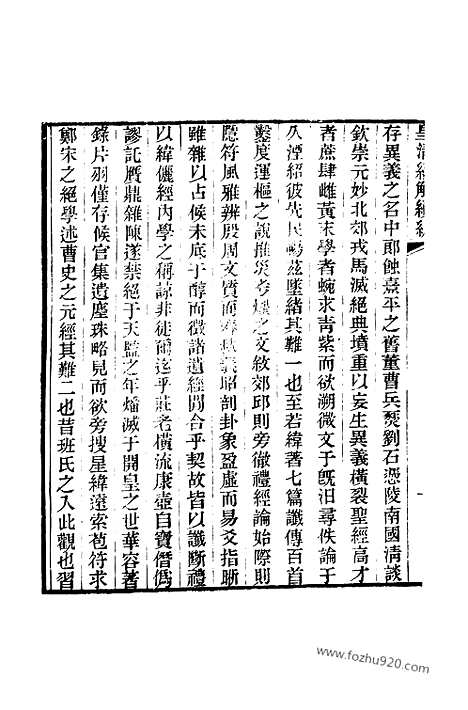 皇清經解經
存異義之名中郎蝕熹平之舊董曹兵燹劉石憑陵南國淸談
欽崇元妙北郊戎馬滅絕典墳重以妄生異義橫裂聖經高才
者蔗肆雌黃末學者蜿求靑紫而欲溯微文于旣汨尋佚論于
久湮紹彼茲墜緖其難一也至若緯著七篇讖傳百首
鑿度運樞之說推災考燿之文敘郊邱則旁徹禮經論始際則
隱符風雅辨殷周文質而春昭剖卦象盈虛而易爻指晰
雖雜以占候未底于醇而徵諸遺經閒合乎契故皆以讖斷禮
以緯儷經內學之稱諒非徒爾迄乎莊老橫流康壺自寶僭僞
謬託贋鼎雜陳遂禁絕于天監之年燔滅于開皇之世華容著
錄片羽僅存候官集遺塵珠略見而欲旁搜星緯遠索苞符求
鄭宋之絕學述曹史之元經其難二也昔班氏之入此觀也習
www.fozhu920.com